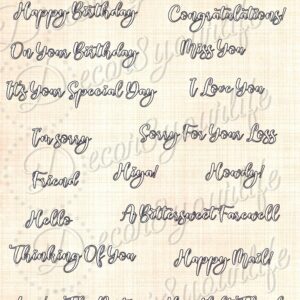 Happy Birthday
Congratulations!
On Your Birthday
Miss You
It's Your Special Day
I Love You
I'm sorry
Sorry For Your Loss
Friend
Hiya!
Howdy!
Hello
A Bittersweet Farewell
Thinking Of You
Happy Mail!
Decor8yourlife
Decor8yourlife